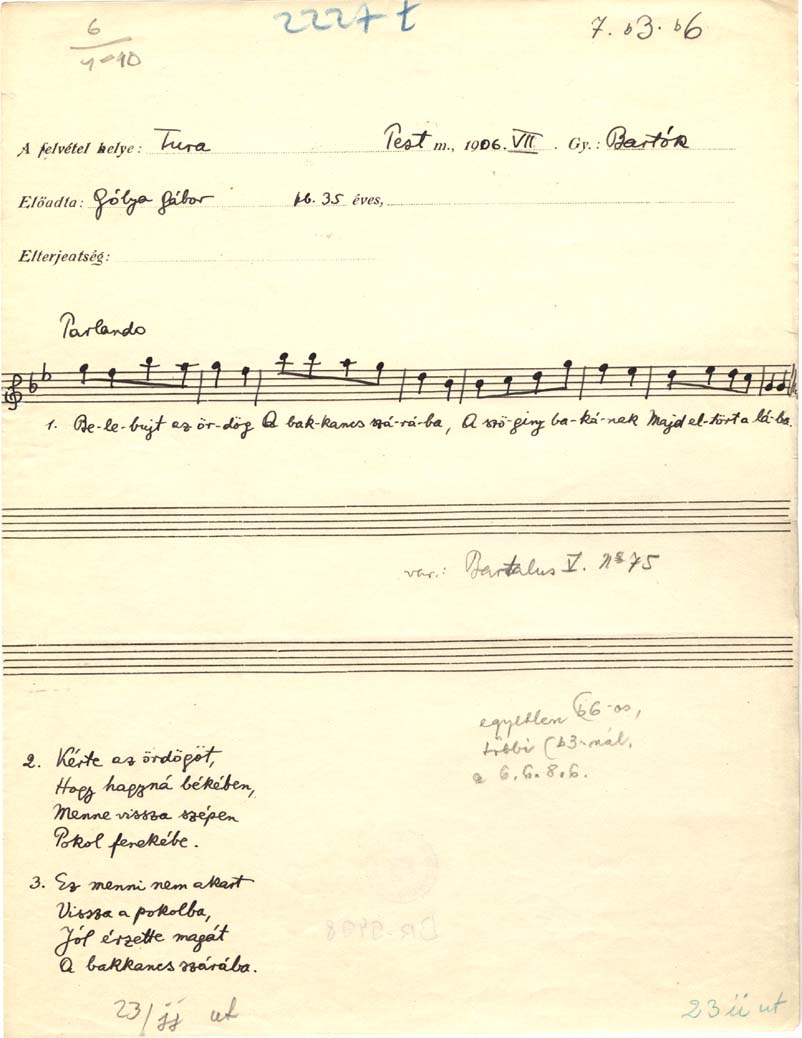 6
2227 t
7. b3. b6
A felvétel helye: Tura Pest m., 1906. VII. Gy.: Bartók
Előadta: Gólya Gábor kb. 35 éves,
Elterjedtség:
Parlando
1. Be-le-bujt az ör-dög A bak-kancs szá-rá-ba, A szö-giny ba-ká-nak Majd el-tört a lá-ba.
var.: Bartalus V. No 75
egyetlen b6-os,
többi b3-nál.
a 6.6.8.6.
2. Kérte az ördögöt,
Hogy hagyná békében,
Menne vissza szépen
Pokol fenekébe.
3. Ez menni nem akart
Vissza a pokolba,
Jól érzette magát
A bakkancs szárába.
23/jj ut
23 ii ut